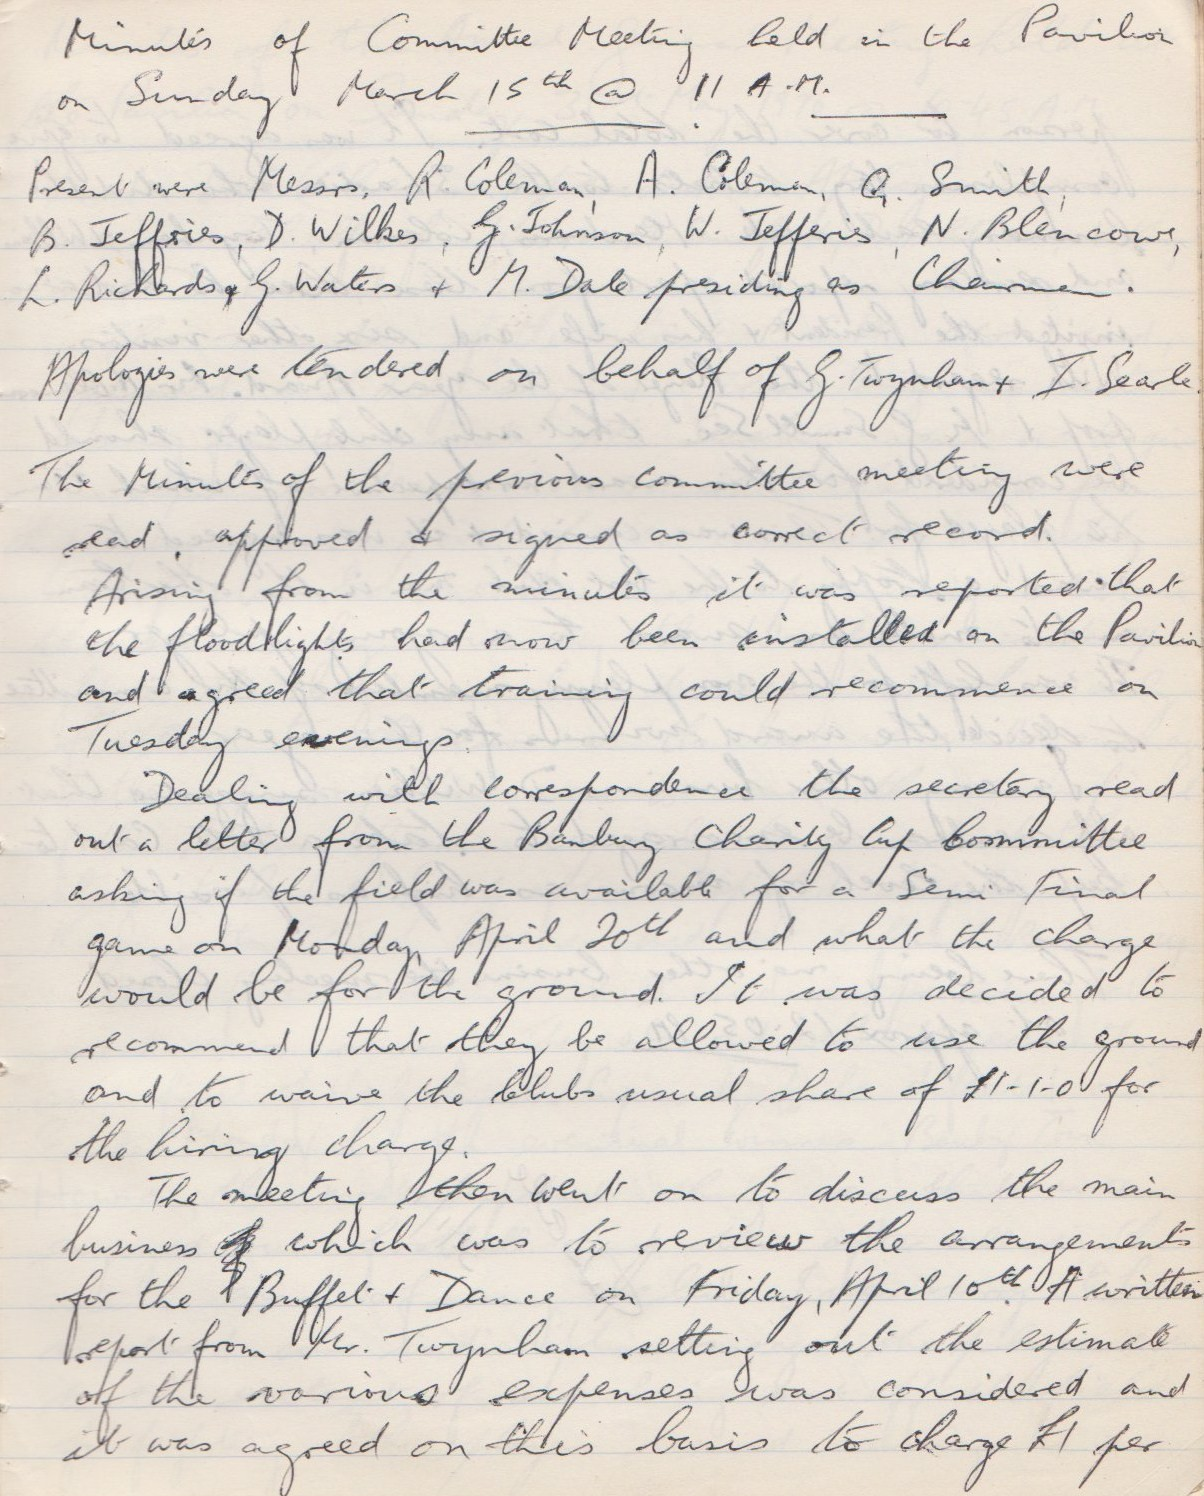 Minutes of Committee Meeting held in the Pavilion
on Sunday March 15th @ 11 A.M.
Present were Messrs. R. Coleman, A. Coleman, G. Smith,
B. Jeffries, D. Wilkes, G. Johnson, W. Jefferies, N. Blencowe,
L. Richards, G. Waters + M. Dale presiding as Chairman.
Apologies were tendered on behalf of G. Twynham + I. Searle.
The Minutes of the previous committee meeting were
read, approved & signed as correct record.
Arising from the minutes it was reported that
the floodlights had now been installed on the Pavilion
and agreed that training could recommence on
Tuesday evenings.
Dealing with correspondence the secretary read
out a letter from the Banbury Charity Cup Committee
asking if the field was available for a Semi Final
game on Monday, April 20th and what the charge
would be for the ground. It was decided to
recommend that they be allowed to use the ground
and to waive the Clubs usual share of £1-1-0 for
the hiring charge.
The meeting then went on to discuss the main
business which was to review the arrangements
for the Buffet + Dance on Friday, April 10th. A written
report from Mr. Twynham setting out the estimate
of the various expenses was considered and
it was agreed on this basis to charge £1 per